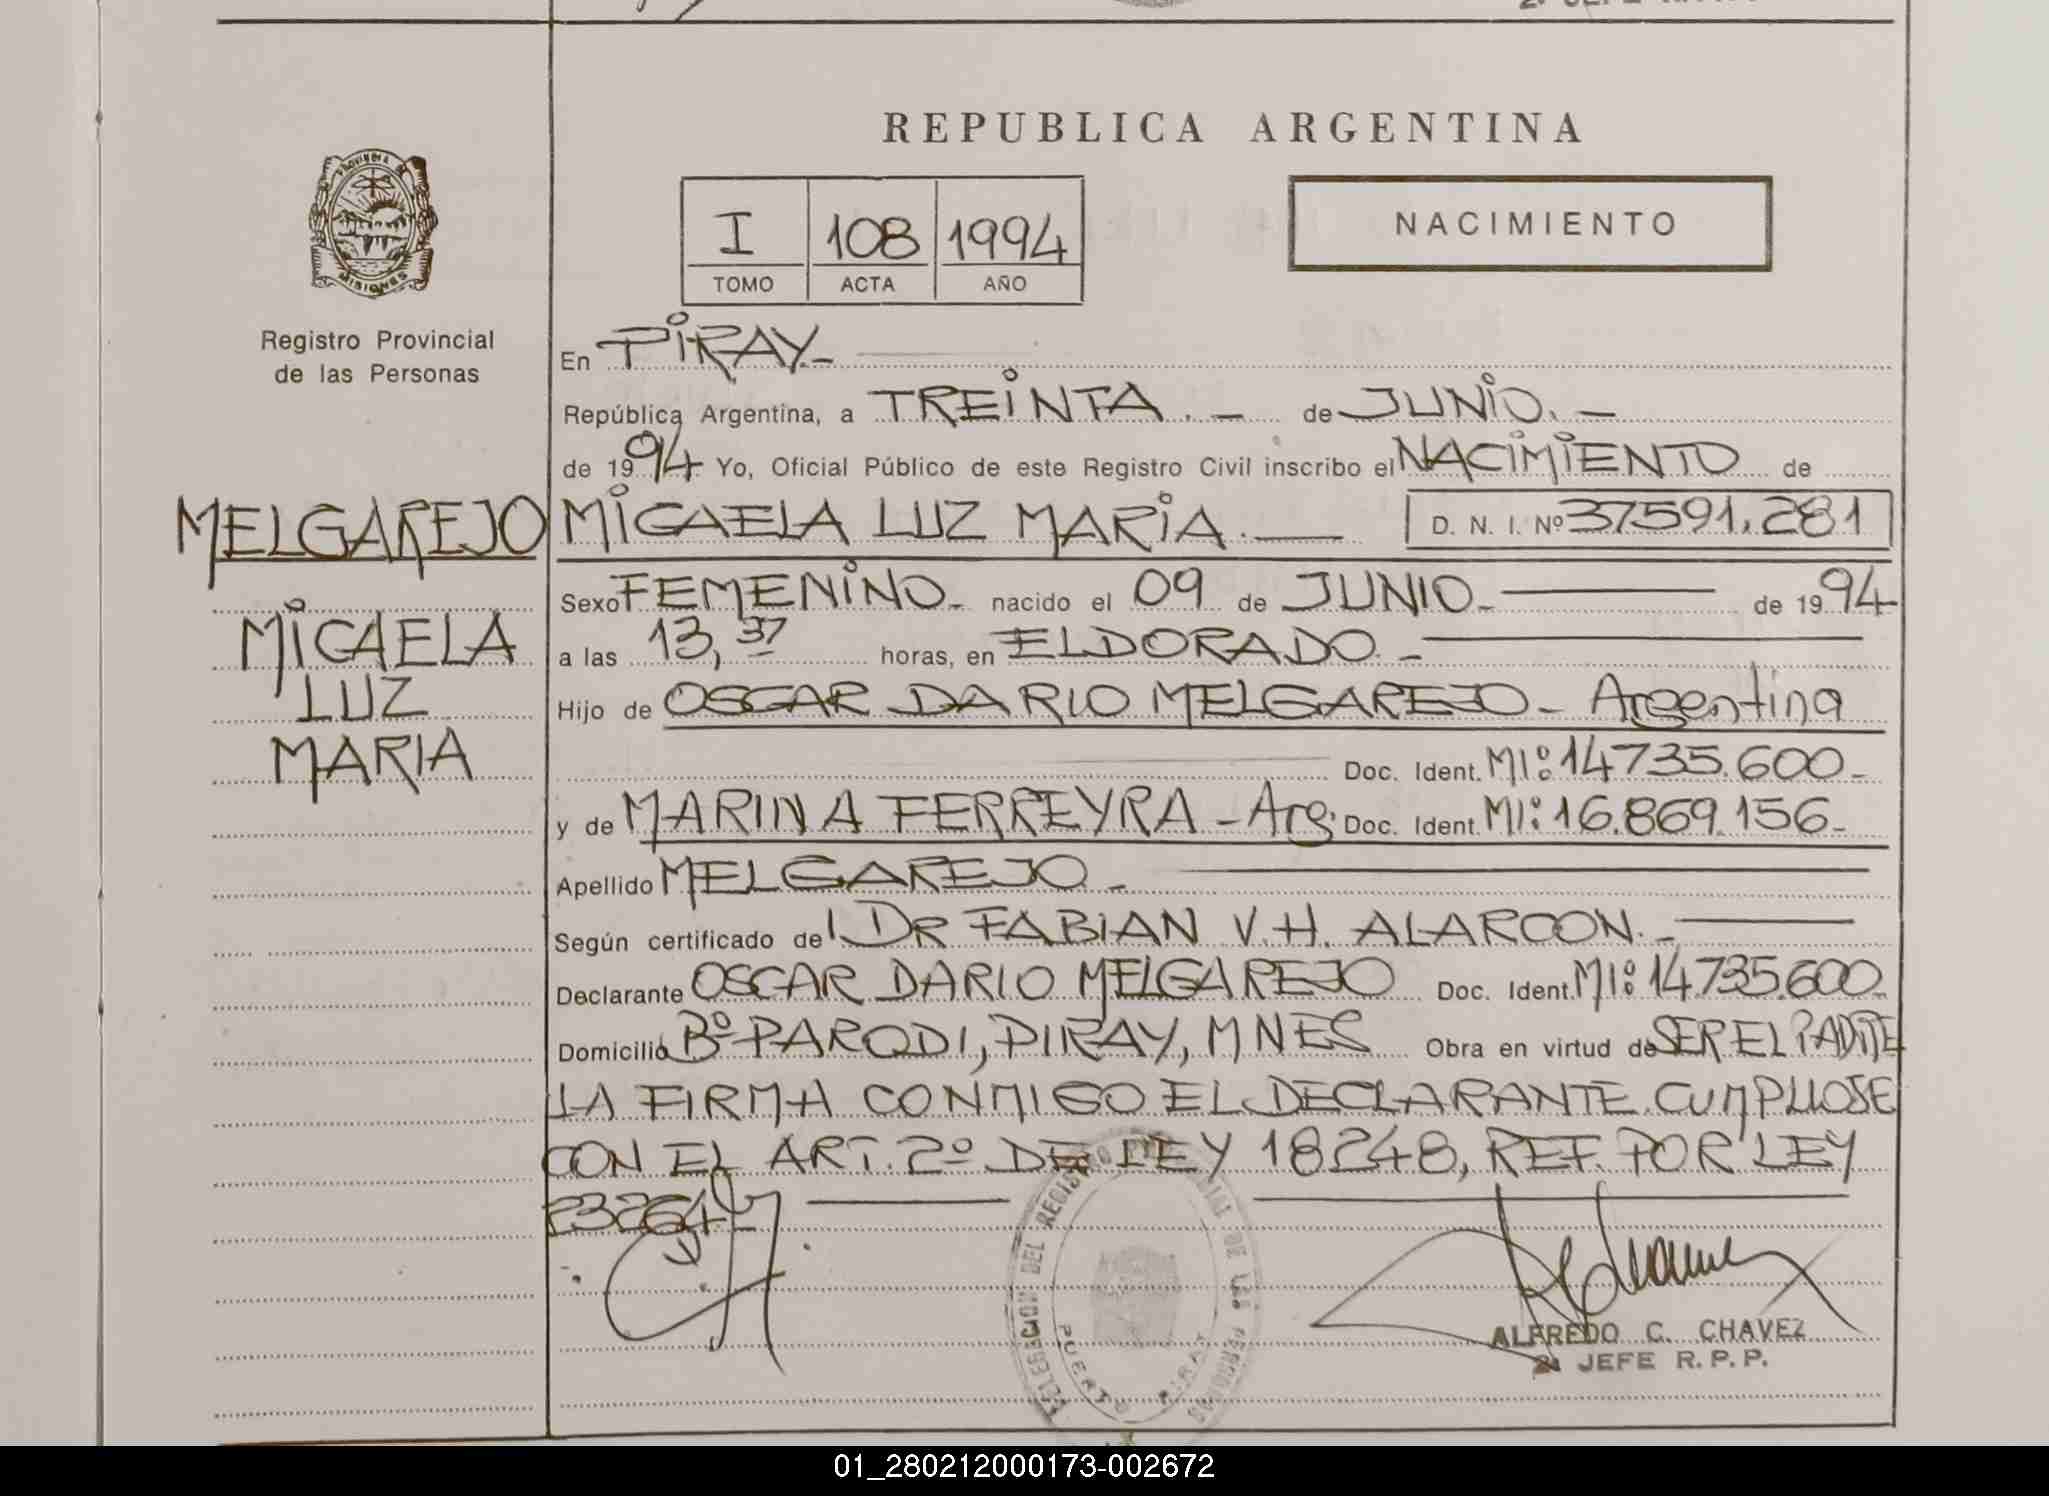 REPUBLICA ARGENTINA
PROVINCIA DE MISIONES
Registro Provincial
de las Personas
I 108 1994
TOMO ACTA AÑO
NACIMIENTO
En PIRAY.-
República Argentina, a TREINTA.- de JUNIO.-
de 1994 Yo, Oficial Público de este Registro Civil inscribo el NACIMIENTO de
MELGAREJO MICAELA LUZ MARIA.- D. N. I. Nº 37591.281
MICAELA
LUZ
MARIA
Sexo FEMENINO- nacido el 09 de JUNIO- de 1994
a las 13,37 horas, en ELDORADO.-
Hijo de OSCAR DARIO MELGAREJO- Argentina
Doc. Ident. MI: 14735.600-
y de MARINA FERREYRA - Arg. Doc. Ident. MI: 16.869.156-
Apellido MELGAREJO-
Según certificado del DR FABIAN V.H. ALARCON.-
Declarante OSCAR DARIO MELGAREJO Doc. Ident. MI: 14.735.600-
Domicilio Bº PARODI, PIRAY, MNES Obra en virtud de SER EL PADRE
LA FIRMA CONMIGO EL DECLARANTE. CUMPLIOSE
CON EL ART. 2º DE LEY 18248, REF. POR LEY
23264-
DELEGACION DEL REGISTRO PROVINCIAL DE LAS PERSONAS
PUERTO PIRAY
ALFREDO C. CHAVEZ
2º JEFE R.P.P.
01_280212000173-002672